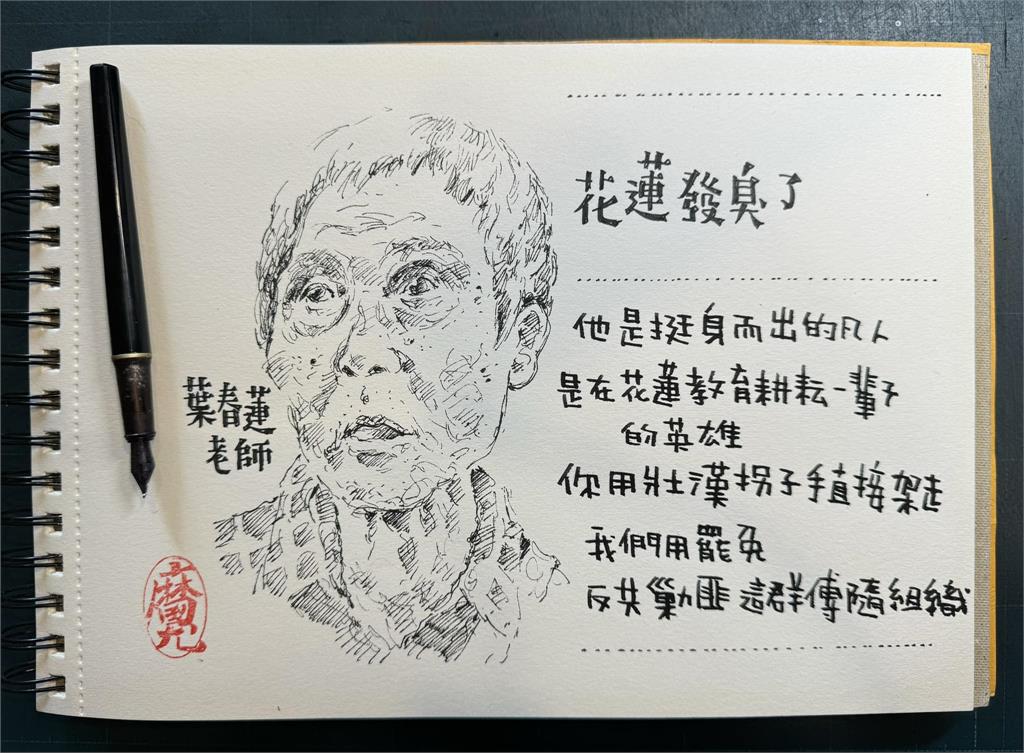 花蓮發臭了
他是挺身而出的凡人
是在花蓮教育耕耘一輩子
的英雄
你用壯漢拐子手直接架走
我們用罷免
反共剿匪這群傳隨組織
葉春蓮
老師